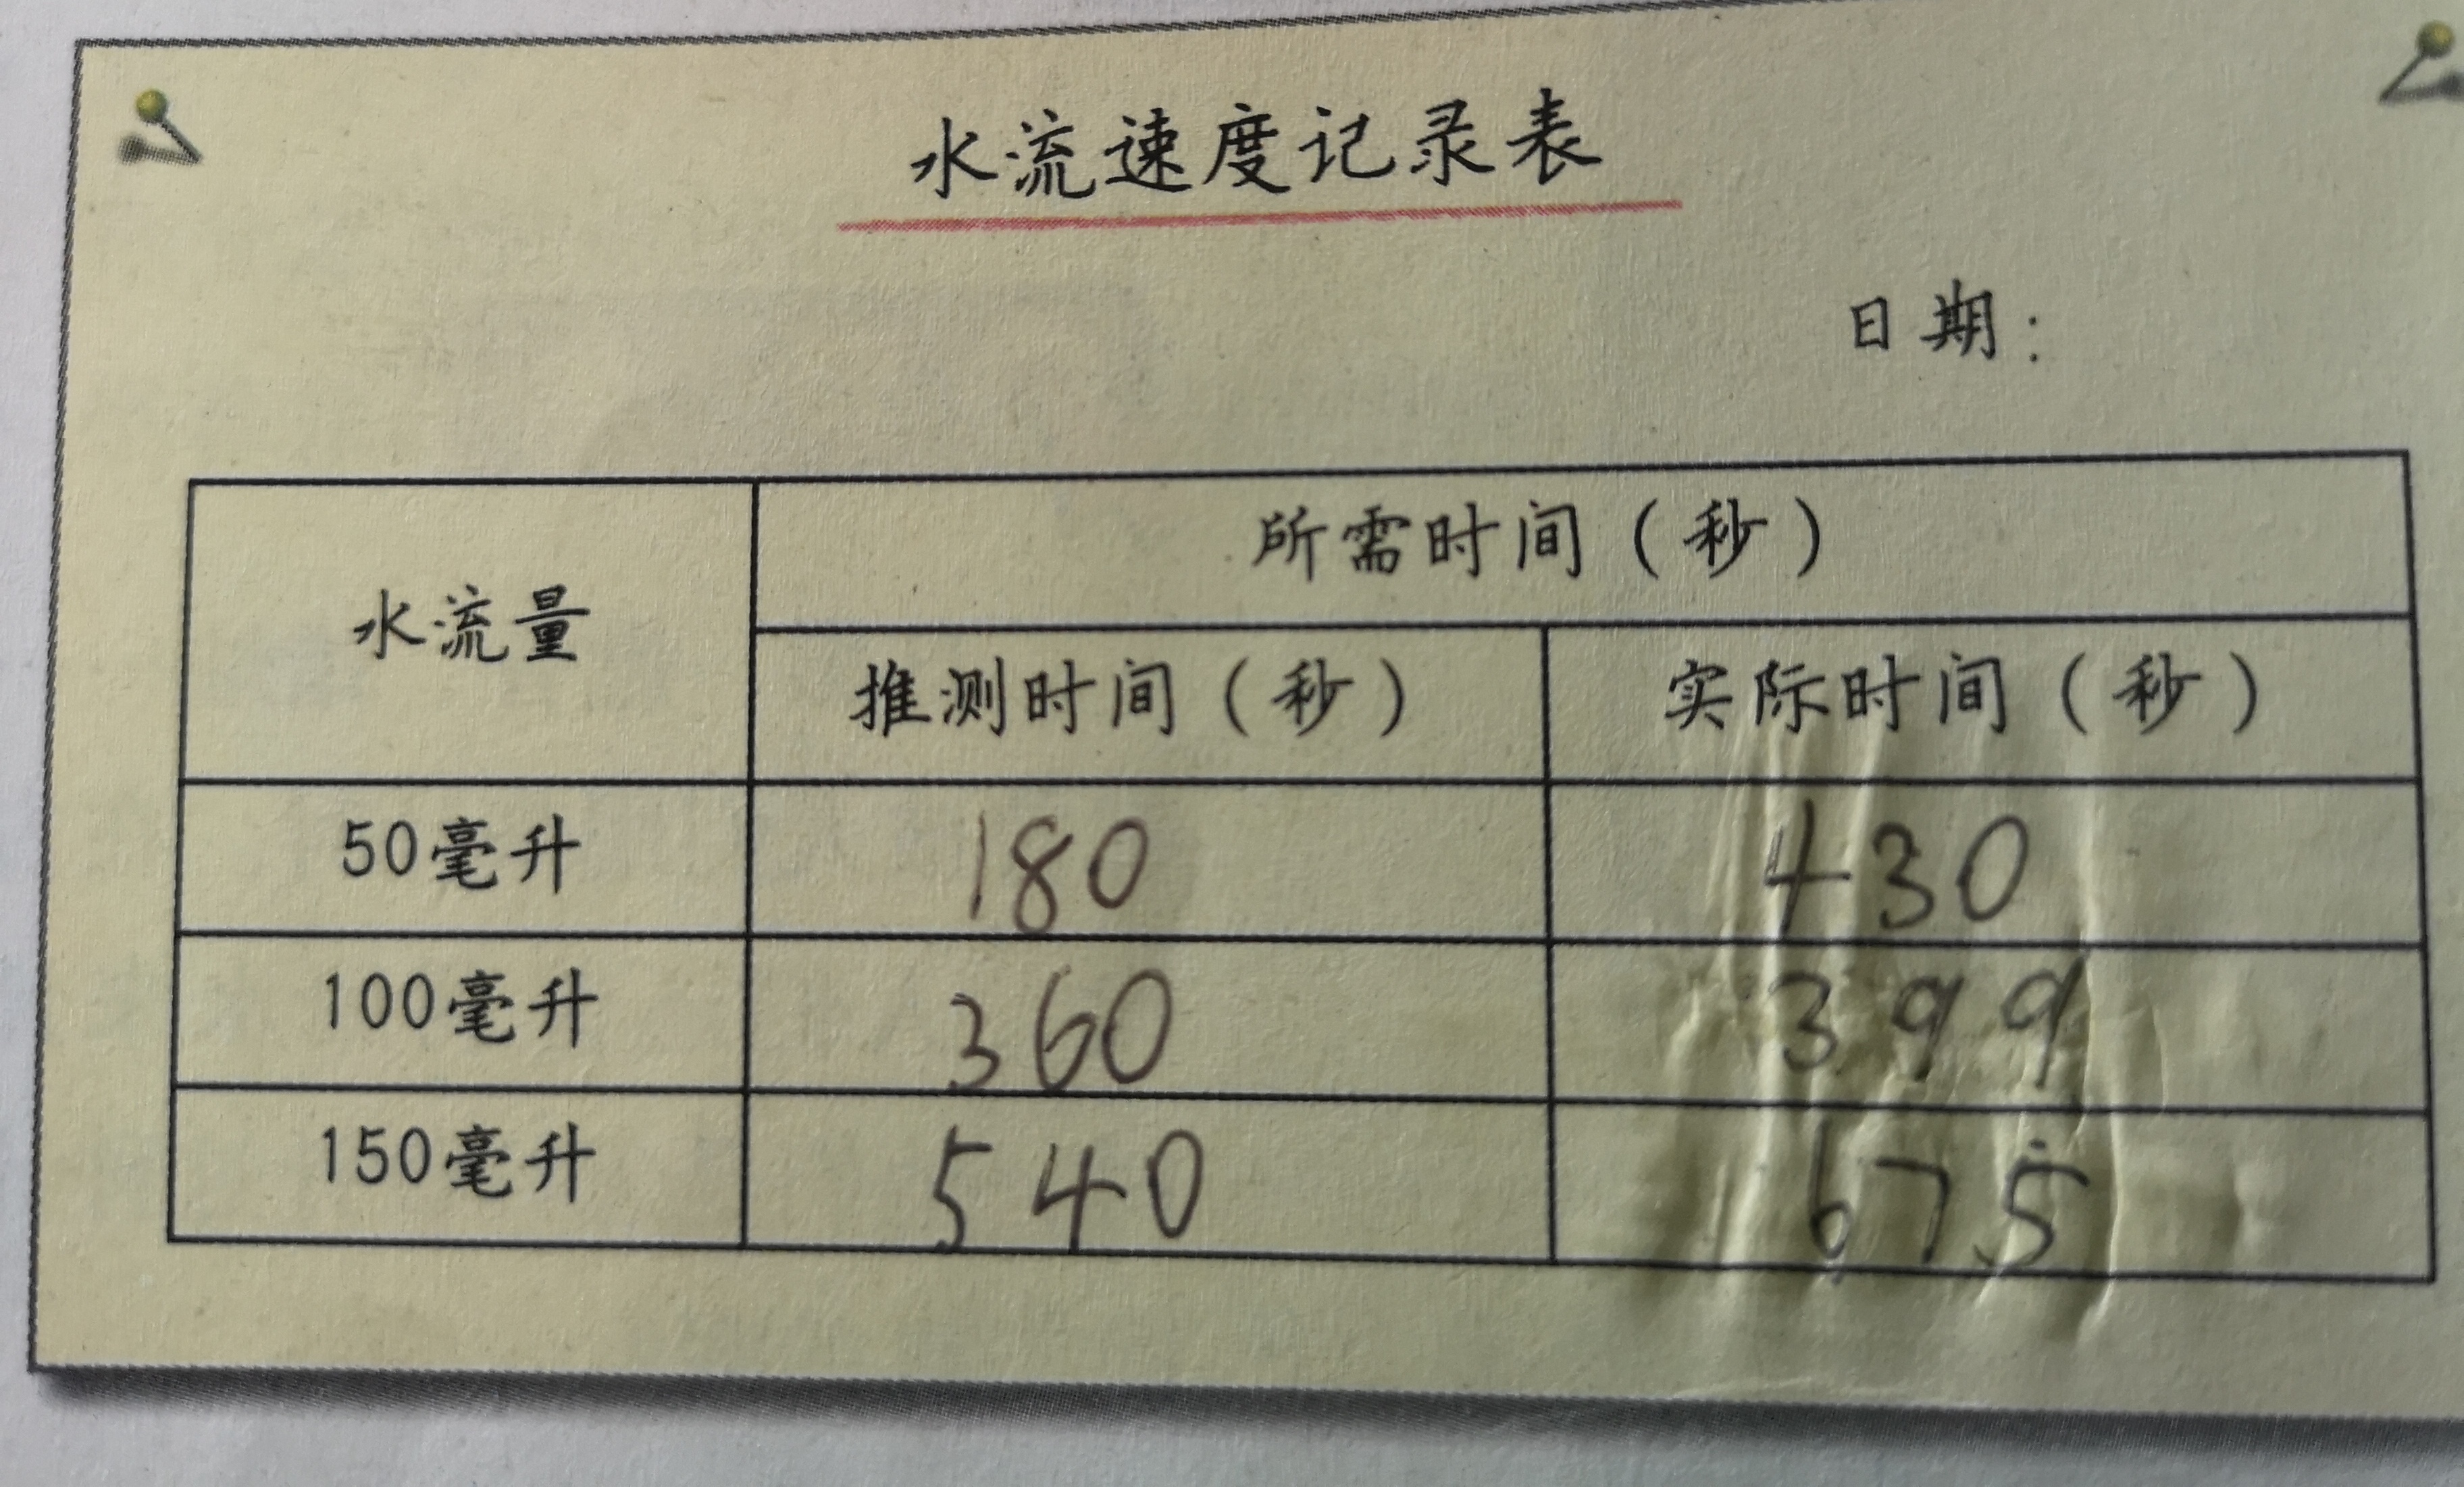 水流速度记录表
日期：
水流量
所需时间（秒）
推测时间（秒） 实际时间（秒）
50毫升 180 430
100毫升 360 399
150毫升 540 675